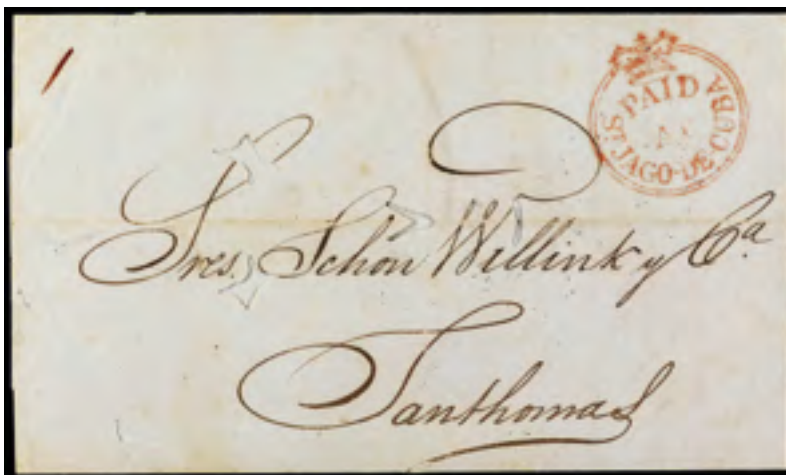 PAID
AT
St JAGO-DE-CUBA
Sres. Schön Willink y Ca.
Santhomas